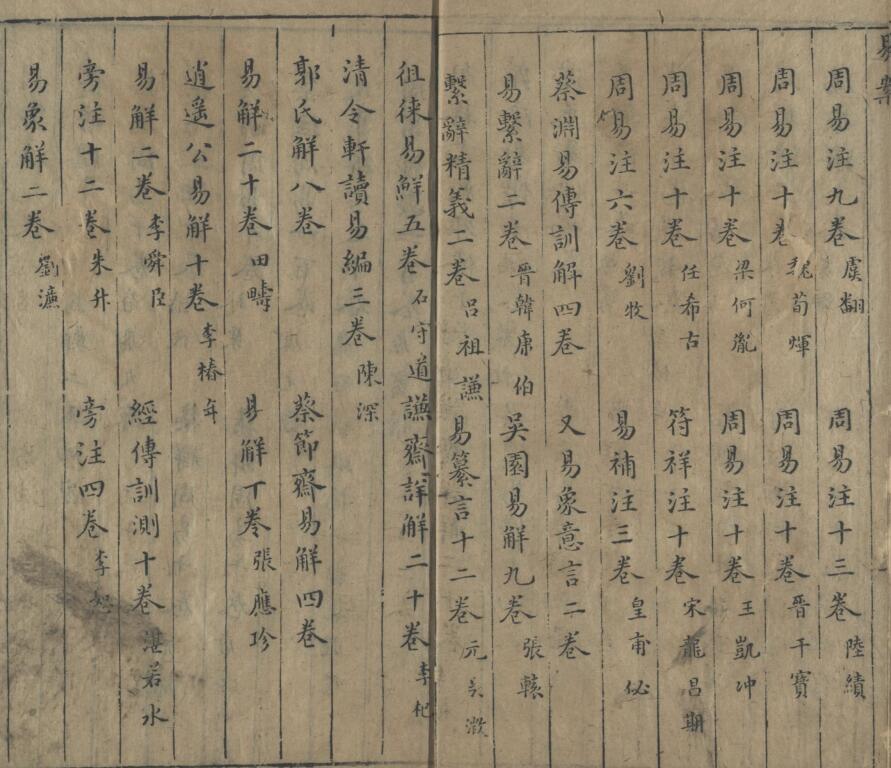 周易注九卷 虞翻 周易注十三卷 陸績
周易注十卷 魏荀煇 周易注十卷 晉干寶
周易注十卷 梁何胤 周易注十卷 王凱冲
周易注十卷 任希古 符祥注十卷 宋龍昌期
周易注六卷 劉牧 易補注三卷 皇甫佖
蔡淵易傳訓解四卷 又易象意言二卷
易繫辭二卷 晉韓康伯 吳園易解九卷 張輅
繫辭精義二卷 呂祖謙 易纂言十二卷 元吳澂
徂徠易解五卷 石守道 謙齋詳解二十卷 李杞
清令軒讀易編三卷 陳深
郭氏解八卷 蔡節齋易解四卷
易解二十卷 田疇 易解丁卷 張應珍
逍遥公易解十卷 李椿年
易解二卷 李舜臣 經傳訓測十卷 湛若水
旁注十二卷 朱升 旁注四卷 李恕
易象解二卷 劉濂